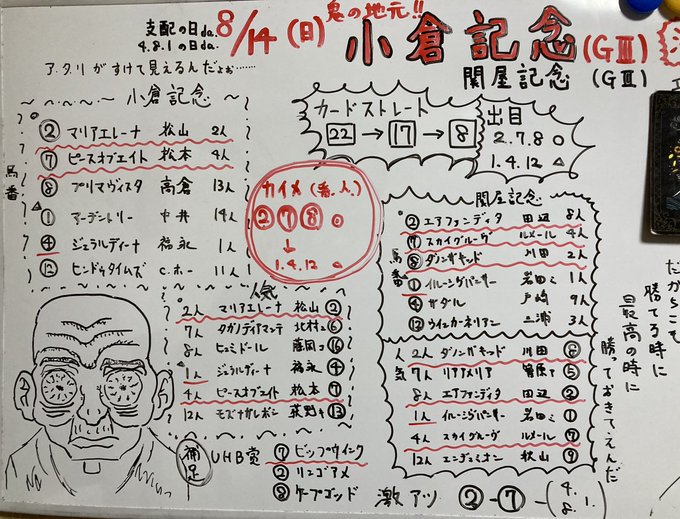 支配の日da.
4.8.1の日da.
8/14(日)
鬼の地元!!
小倉記念(GⅢ)
関屋記念(GⅢ)
アタリがすけて見えるんだよぉ……
小倉記念
馬番
② マリアエレーナ 松山 2人
⑦ ピースオブエイト 松本 4人
⑧ プリマヴィスタ 高倉 13人
① アーデントリー 中井 14人
④ ジェラルディーナ 福永 1人
⑫ ヒンドゥタイムズ C.ホー 11人
カードストレート
22→17→8
出目
2.7.8 ○
1.4.12 △
カイメ(番.人.)
②⑦⑧ ○
↓
1.4.12 △
関屋記念
馬番
② エアファンディタ 田辺 8人
⑦ スカイグルーヴ ルメール 4人
⑧ ダノンザキッド 川田 2人
① イルーシヴパンサー 岩田 1人
④ ザダル 戸崎 9人
⑫ ウインカーネリアン 三浦 3人
人気
2人 マリアエレーナ 松山 ②
7人 タガノディアマンテ 北村 ⑥
8人 ヒュミドール 藤岡 ⑯
1人 ジェラルディーナ 福永 ④
4人 ピースオブエイト 松本 ⑦
12人 モズナガレボシ ⑬
人気
2人 ダノンザキッド 川田 ⑧
7人 リアアメリア 菅原 ⑤
8人 エアファンディタ 田辺 ②
1人 イルーシヴパンサー 岩田 ①
4人 スカイグルーヴ ルメール ⑦
12人 エンデュミオン 秋山 ⑨
補足
UHB賞
⑦ ビップウインク
② リンゴアメ
⑧ ケープゴッド
激アツ ②-⑦-(4.8.1.)
だからこそ
勝てる時に
最高の時に
勝っておきてえんだ